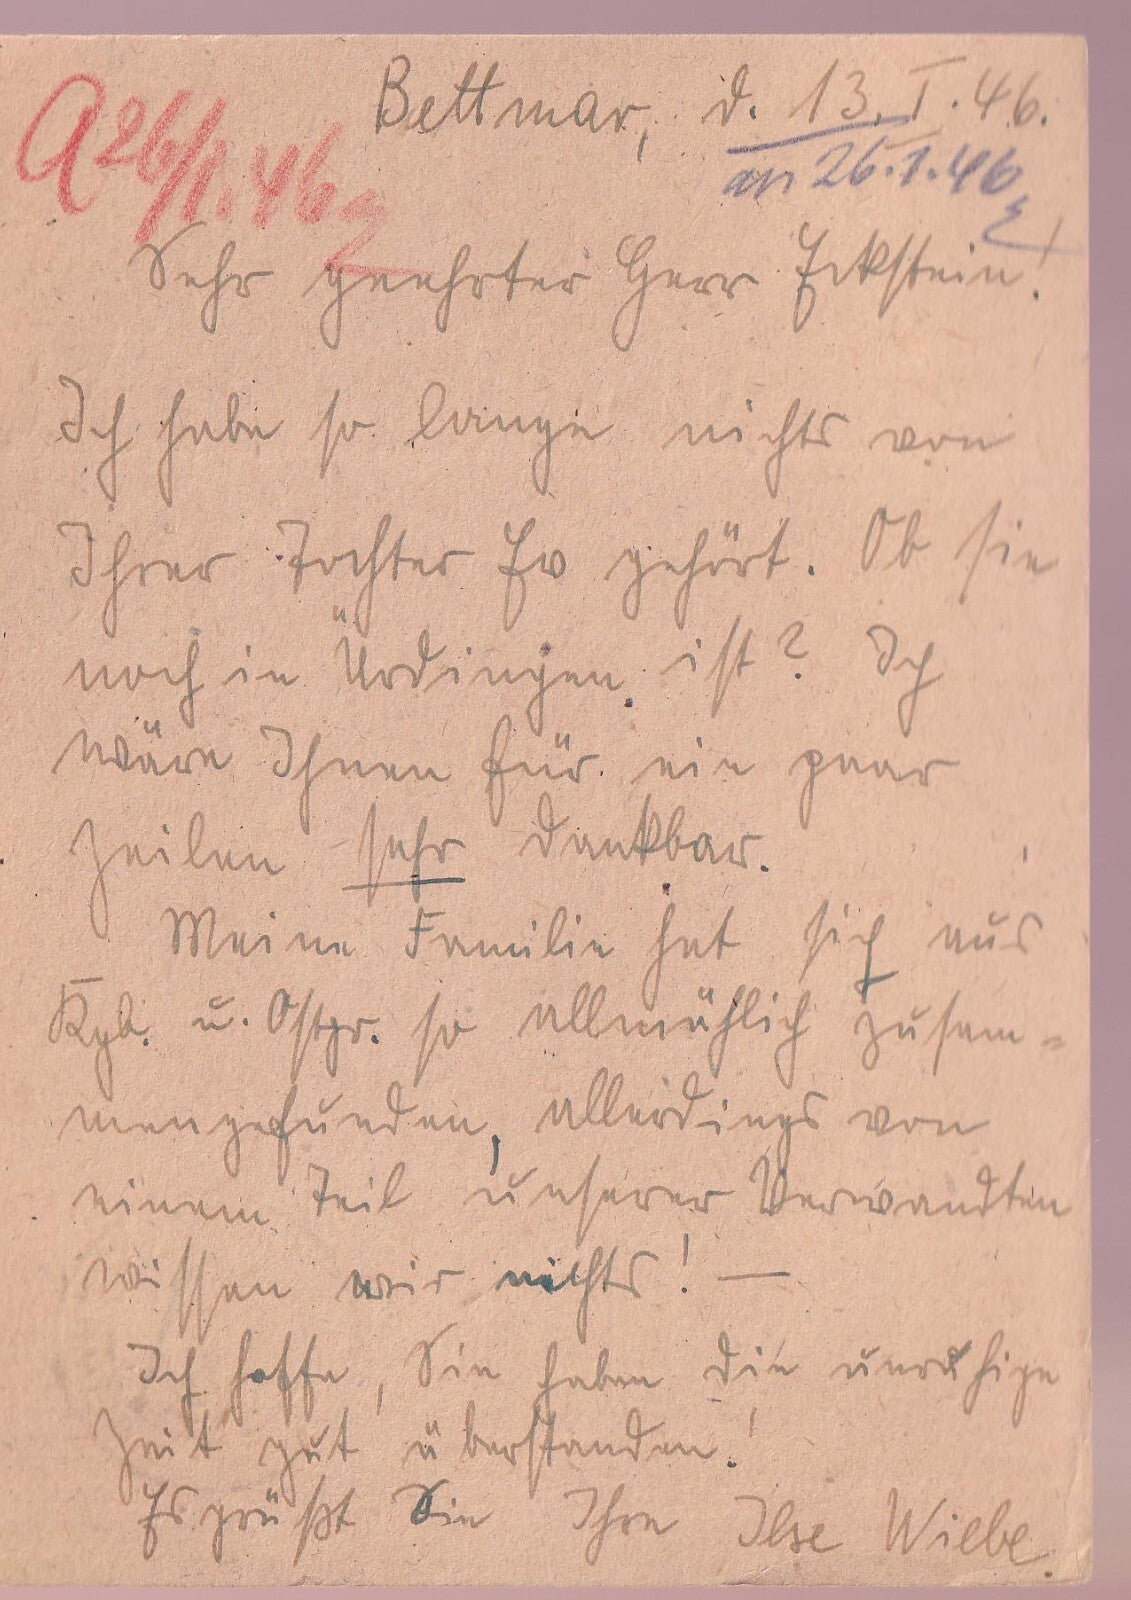 Bettmar, d. 13. I. 46.
A 26/1.46
an 26.1.46
Sehr geehrter Herr Eckstein!
Ich habe so lange nichts von
Ihrer Tochter Ev gehört. Ob sie
noch in Ürdingen ist? Ich
wäre Ihnen für ein paar
Zeilen sehr dankbar.
Meine Familie hat sich aus
Kgb. u. Ostpr. so allmählich zusam=
mengefunden, allerdings von
einem Teil unserer Verwandten
wissen wir nichts! —
Ich hoffe, Sie haben die unruhige
Zeit gut überstanden!
Es grüßt Sie Ihre Ilse Wiebe.